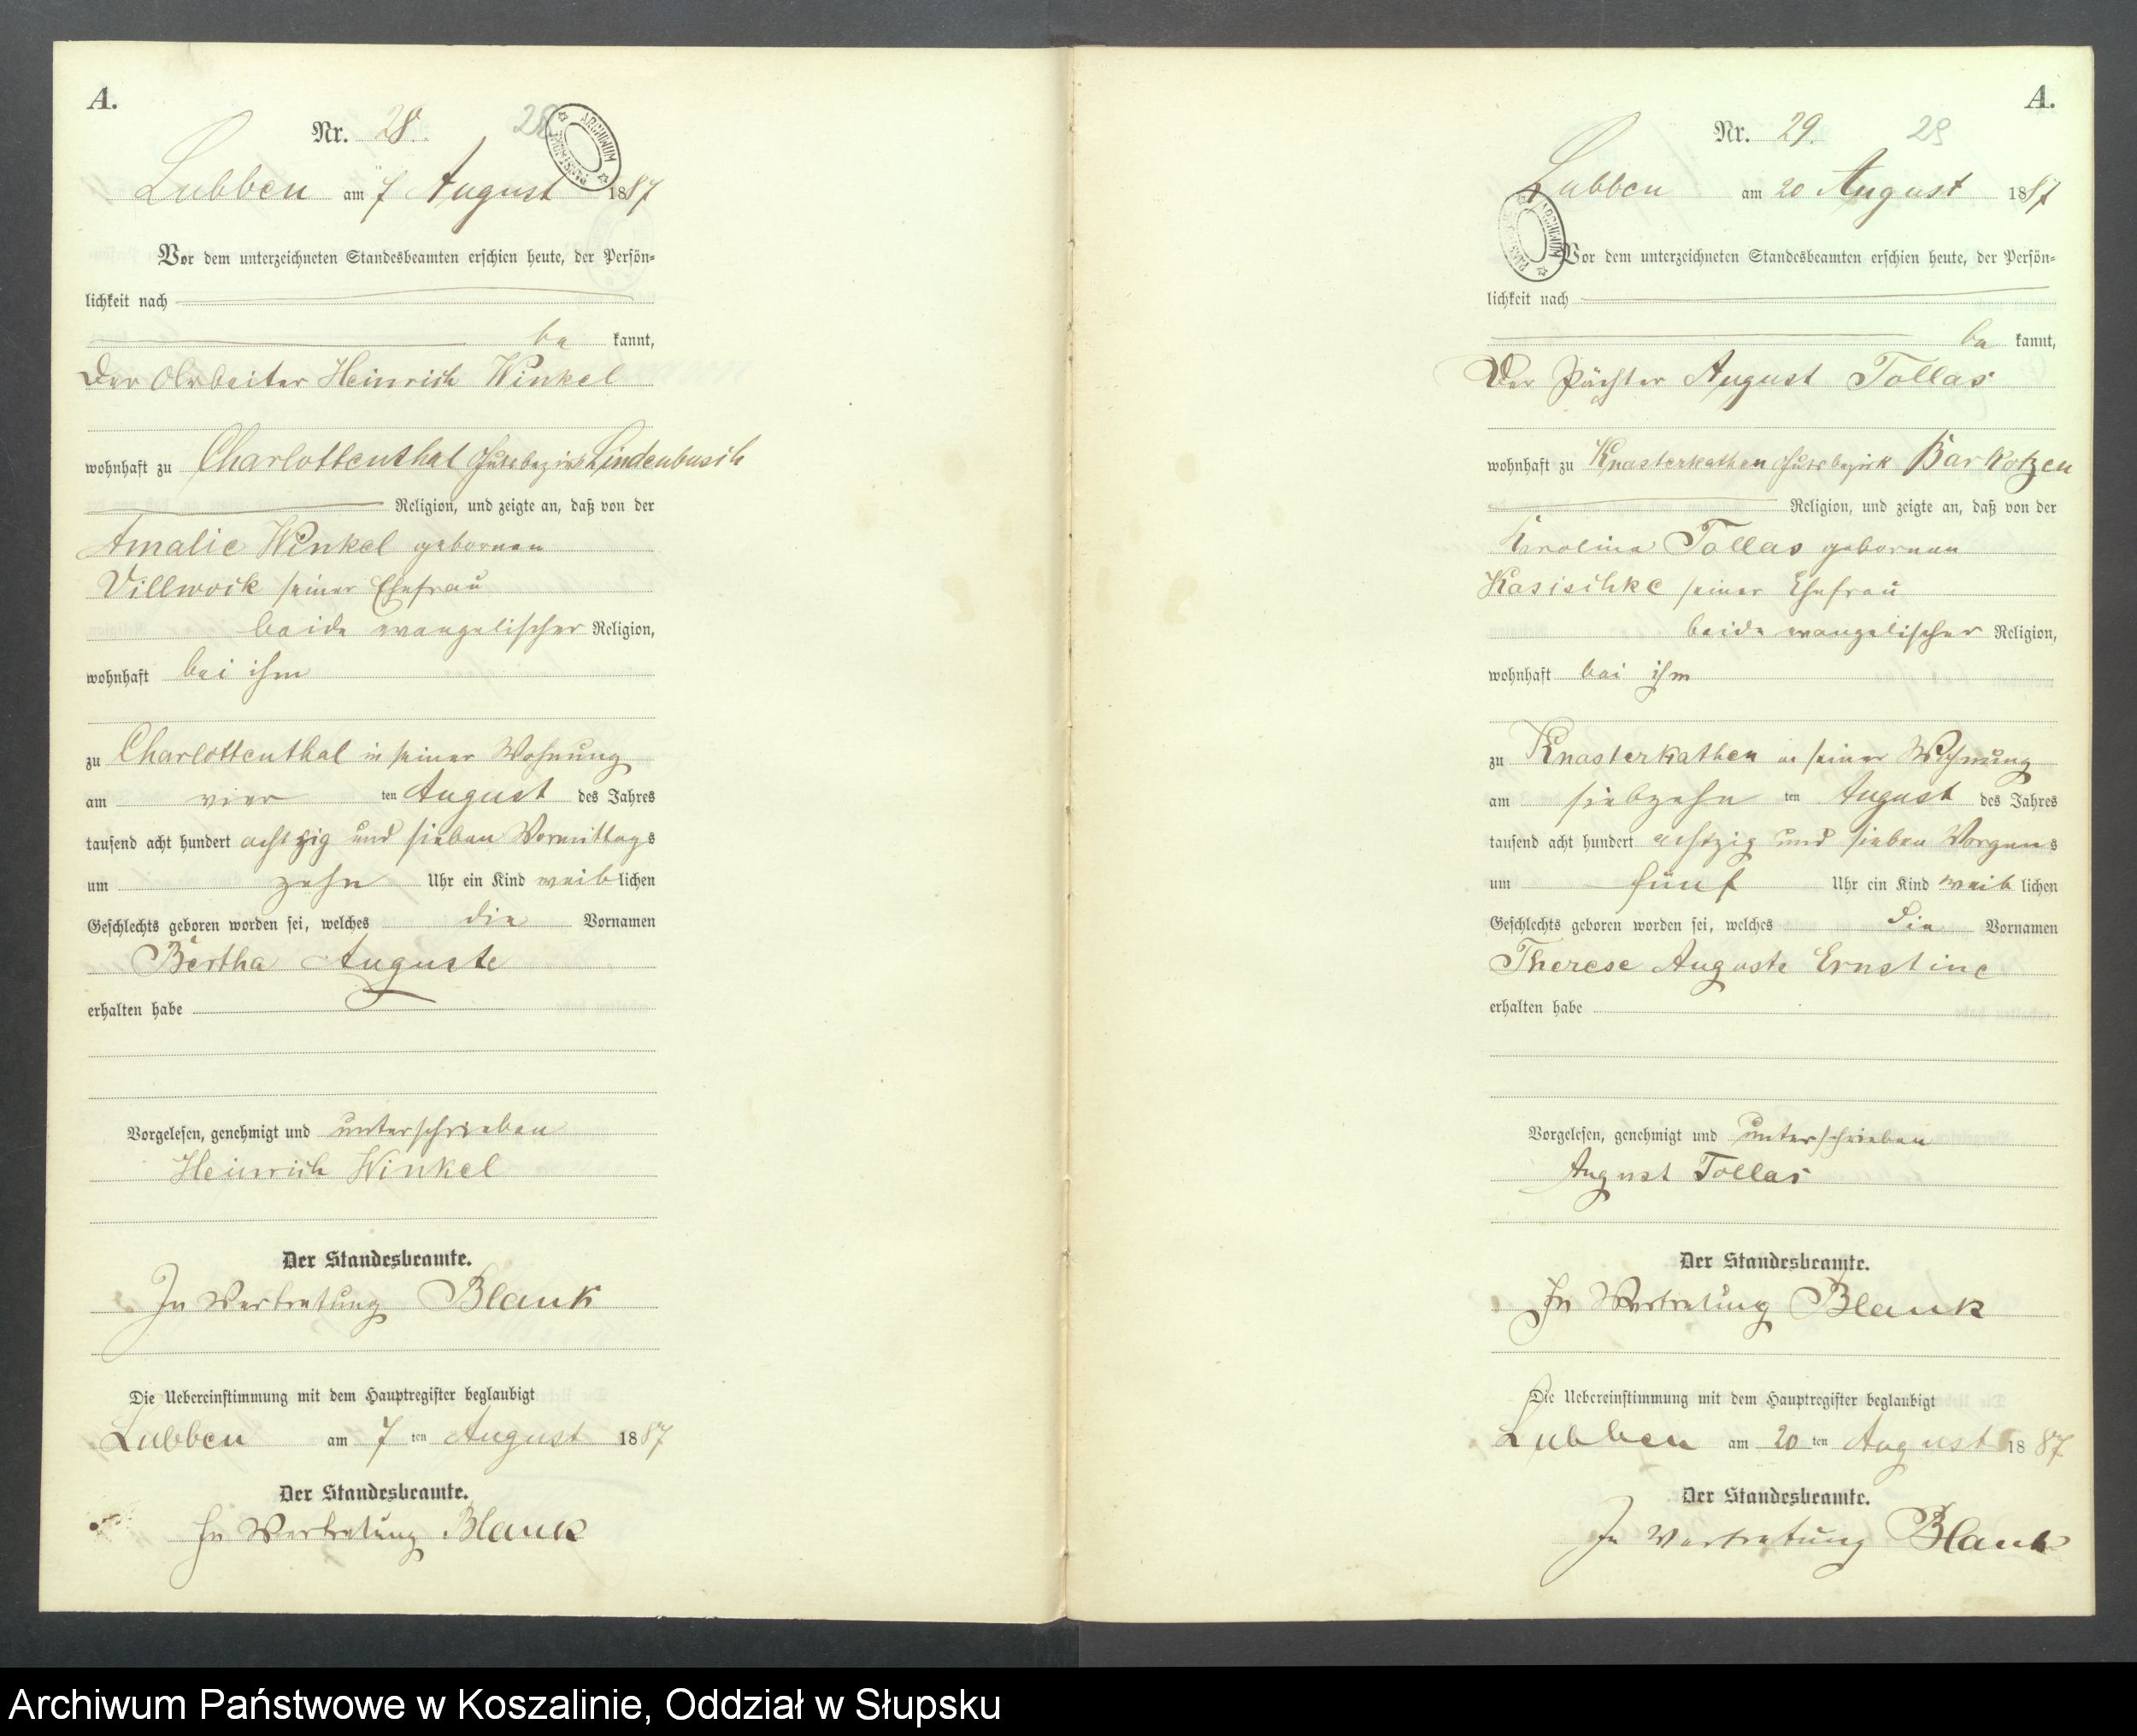 A.
Nr. 28. 28
ARCHIWUM PAŃSTWOWE
Lubben am 7 August 1887
Vor dem unterzeichneten Standesbeamten erschien heute, der Persön-
lichkeit nach
be kannt,
Der Arbeiter Heinrich Winkel
wohnhaft zu Charlottenthal Gutsbezirk Lindenbusch
Religion, und zeigte an, daß von der
Amalie Winkel geborenen
Villwock seiner Ehefrau
beide evangelischer Religion,
wohnhaft bei ihm
zu Charlottenthal in seiner Wohnung
am vier ten August des Jahres
tausend acht hundert achtzig und sieben Vormittags
um zehn Uhr ein Kind weib lichen
Geschlechts geboren worden sei, welches die Vornamen
Bertha Auguste
erhalten habe
Vorgelesen, genehmigt und unterschrieben
Heinrich Winkel
Der Standesbeamte.
In Vertretung Blank
Die Uebereinstimmung mit dem Hauptregister beglaubigt
Lubben am 7 ten August 1887
Der Standesbeamte.
In Vertretung Blank
A.
Nr. 29. 29
Lubben am 20 August 1887
ARCHIWUM PAŃSTWOWE
Vor dem unterzeichneten Standesbeamten erschien heute, der Persön-
lichkeit nach
be kannt,
Der Pächter August Tollas
wohnhaft zu Knasterkathen Gutsbezirk Barkotzen
Religion, und zeigte an, daß von der
Karoline Tollas geborenen
Kasischke seiner Ehefrau
beide evangelischer Religion,
wohnhaft bei ihm
zu Knasterkathen in seiner Wohnung
am siebzehn ten August des Jahres
tausend acht hundert achtzig und sieben Morgens
um fünf Uhr ein Kind weib lichen
Geschlechts geboren worden sei, welches die Vornamen
Therese Auguste Ernstine
erhalten habe
Vorgelesen, genehmigt und unterschrieben
August Tollas
Der Standesbeamte.
In Vertretung Blank
Die Uebereinstimmung mit dem Hauptregister beglaubigt
Lubben am 20 ten August 1887
Der Standesbeamte.
In Vertretung Blank
Archiwum Państwowe w Koszalinie, Oddział w Słupsku